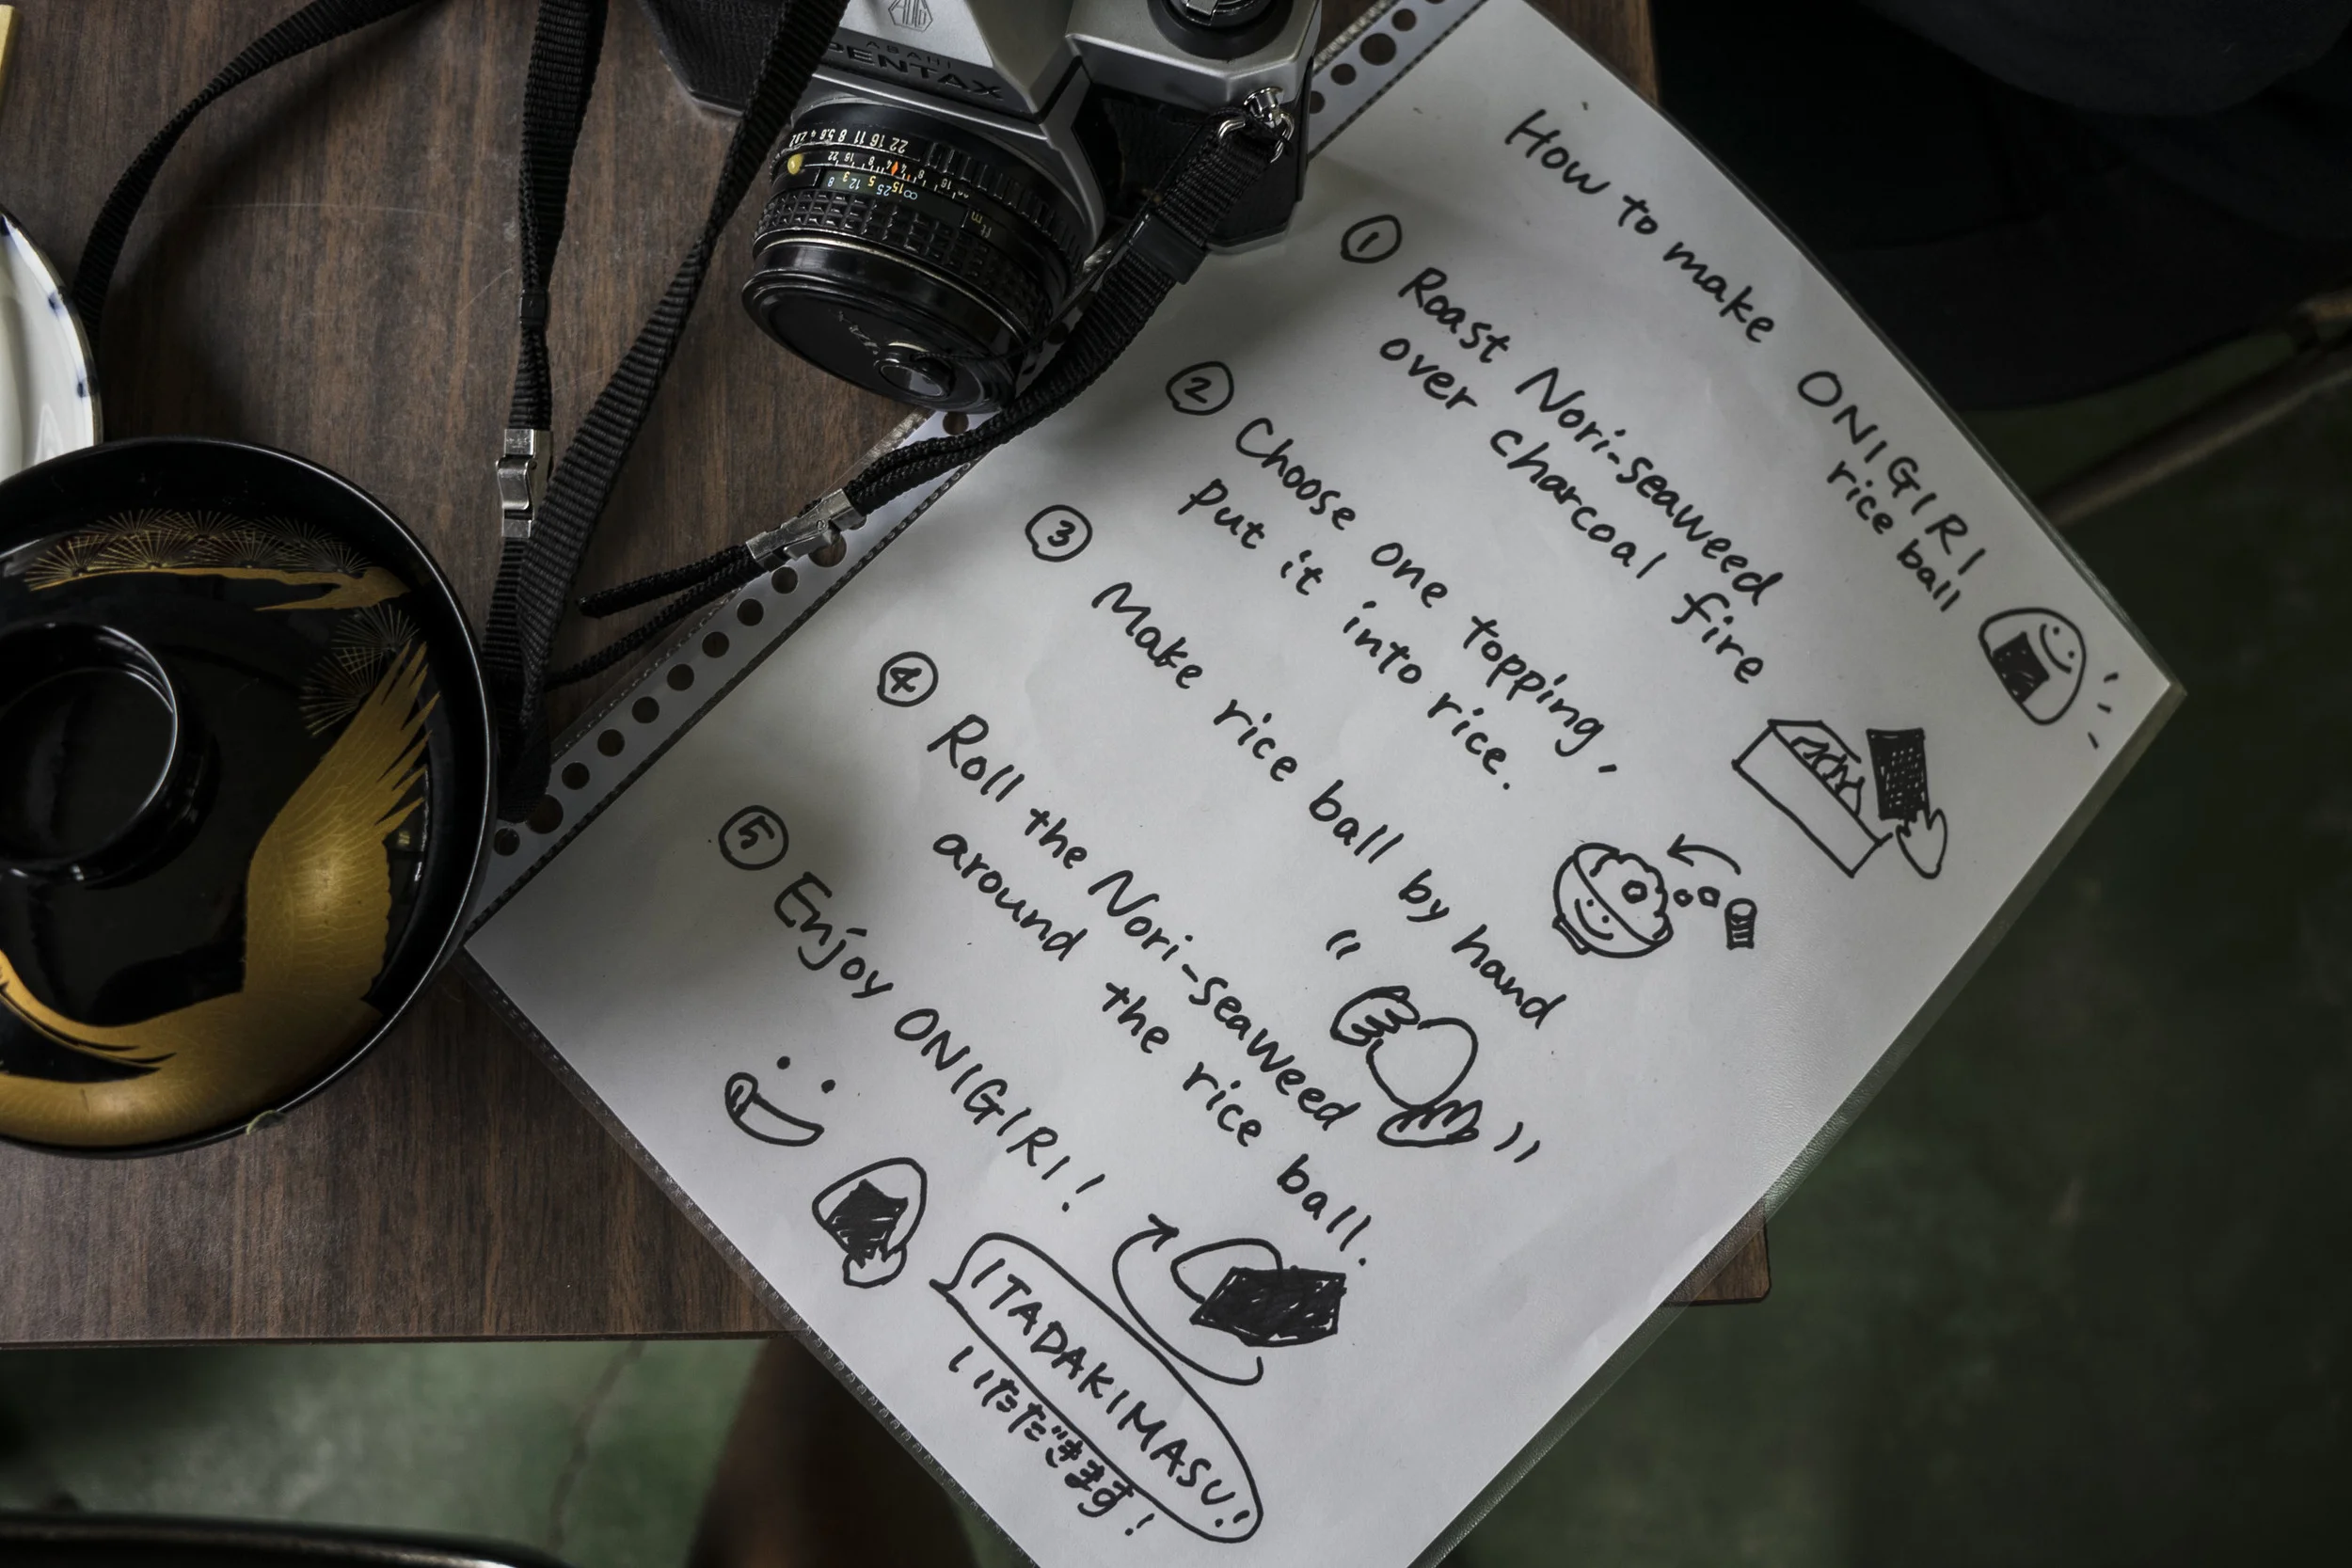 ASAHI
PENTAX
22 16 11 8 5.6 4 2.8 2
How to make ONIGIRI
rice ball
① Roast Nori-seaweed
over charcoal fire
② Choose one topping,
put it into rice.
③ Make rice ball by hand
④ Roll the Nori-seaweed
around the rice ball.
⑤ Enjoy ONIGIRI!
ITADAKIMASU!!
いただきます!